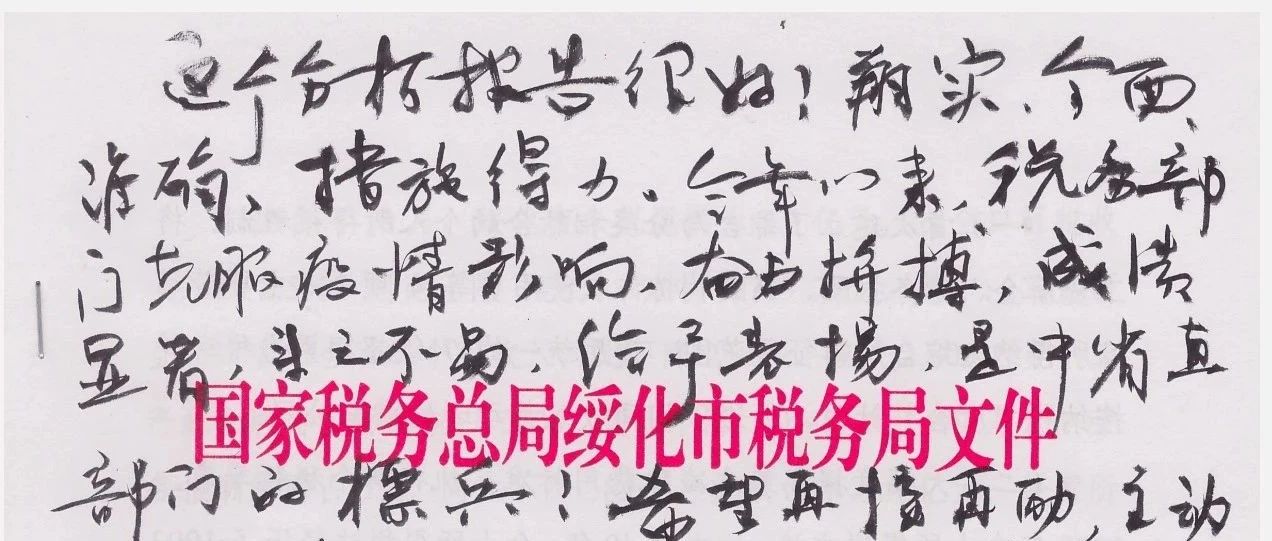 这个分析报告很好！翔实、全面、
准确、措施得力。今年以来，税务部
门克服疫情影响，奋力拼搏，成绩
显著，来之不易，给予表扬，是中省直
国家税务总局绥化市税务局文件
部门的标兵！希望再接再励，主动